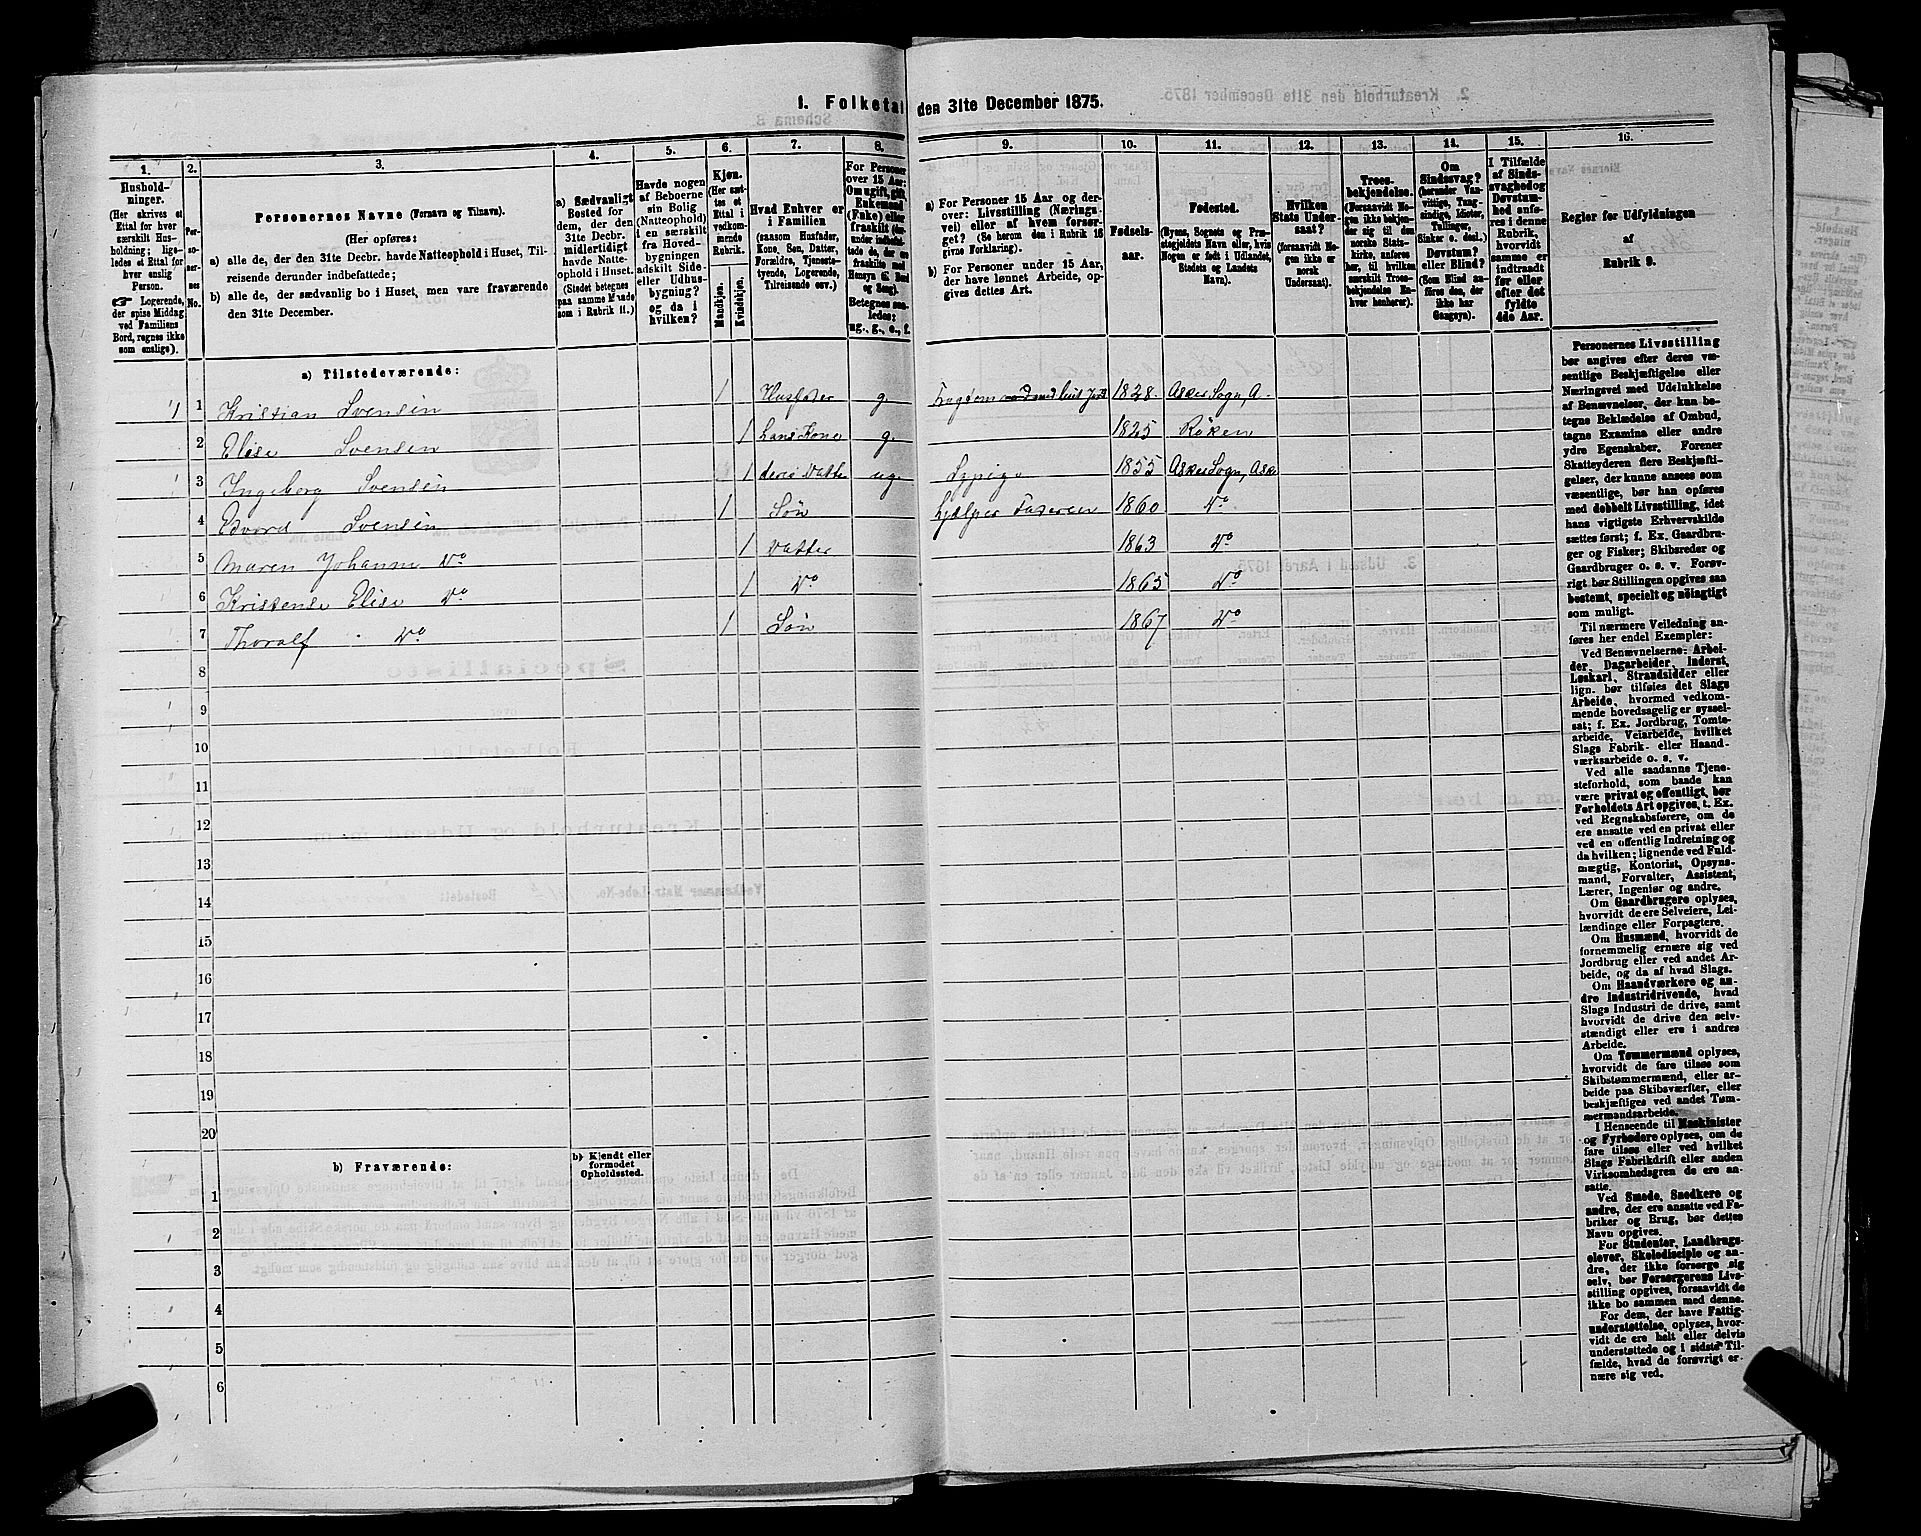 1. Folketal
den 31te December 1875.
1.
2.
3.
4.
5.
6.
7.
8.
9.
10.
11.
12.
13.
14.
15.
16.
Hushold-
ninger.
(Her skrives et
Ettal for hver
særskilt Hus-
holdning; lige-
ledes et Ettal for
hver enslig
Person.
☞ Logerende,
der spise Middag
ved Familiens
Bord, regnes ikke
som enslige).
Per-
so-
ner-
nes
No.
Personernes Navne (Fornavn og Tilnavn).
(Her opføres:
a) alle de, der den 31te Decbr. havde Natteophold i Huset, Til-
reisende derunder indbefattede;
b) alle de, der sædvanlig bo i Huset, men vare fraværende
den 31te December.
a) Sædvanligt
Bosted for
dem, der den
31te Decbr.
midlertidigt
havde Natte-
ophold i Huset.
(Stedet betegnes
paa samme Maade
som i Rubrik 11.)
Havde nogen
af Beboerne
sin Bolig
(Natteophold)
i en særskilt
fra Hoved-
bygningen
adskilt Side-
eller Udhus-
bygning?
og da i
hvilken?
Kjøn.
(Her sæt-
tes et
Ettal i
vedkom-
mende
Rubrik.
Mandkjøn.
Kvindekjøn.
Hvad Enhver er
i Familien
(saasom Husfader,
Kone, Søn, Datter,
Forældre, Tjeneste-
tyende, Logerende,
Tilreisende osv.)
For Personer
over 15 Aar:
Om ugift, gift,
Enkemand
(Enke) eller
fraskilt
Betegnes saa-
ledes:
ug., g., e., f.
a) For Personer 15 Aar og der-
over: Livsstilling (Nærings-
vei) eller af hvem forsør-
get? (Se herom den i Rubrik 16
givne Forklaring).
b) For Personer under 15 Aar,
der have lønnet Arbeide, op-
gives dettes Art.
Fødsels-
aar.
Fødested.
(Byens, Sognets og Præ-
stegjeldets Navn eller, hvis
Nogen er født i Udlandet,
Stedets og Landets
Navn).
Hvilken
Stats Under-
saat?
(forsaavidt No-
gen ikke er
norsk
Undersaat).
Troes-
bekjendelse.
(Forsaavidt No-
gen ikke bekjen-
der sig til den
norske Stats-
kirke, anføres
her, til hvilken
særskilt Troes-
bekjendelse En-
hver henhører).
Om
Sindssvag?
(herunder Van-
vittige, Tung-
sindige, Idioter,
Tullinger,
Sinker o. desl.)
Døvstum?
eller Blind?
(Som Blind an-
føres den, der
ikke har
Gangsyn).
I Tilfælde
af Sinds-
svaghed og
Døvstum-
hed anfø-
res i denne
Rubrik,
hvorvidt
samme er
indtraadt
før eller
efter det
fyldte
4de Aar.
Regler for Udfyldningen
af
Rubrik 9.
a) Tilstedeværende:
1 1 Kristian Svensen 1 Husfader g. 1828. Asker Sogn, A.
2 Elise Svensen 1 hans Kone g. 1825 Røken
3 Ingeborg Svensen 1 deres Datter ug. Sypige 1855 Asker Sogn, Aske
4 Edvord Svensen 1 Søn hjælper Faderen 1860 Do
5 Maren Johanne Do 1 Datter 1863 Do
6 Kristense Elise Do 1 Do 1865 Do
7 Thoralf Do 1 Søn 1867 Do
8
9
10
11
12
13
14
15
16
17
18
19
20
b) Fraværende:
b) Kjendt eller
formodet
Opholdssted.
1
2
3
4
5
6
Personernes Livsstilling
bør angives efter deres væ-
sentlige Beskjæftigelse eller
Næringsvei med Udelukkelse
af Benævnelser, der kun be-
tegne Beklædelse af Ombud,
tagne Examina eller andre
ydre Egenskaber. Forener
Skatteyderen flere Beskjæfti-
gelser, der kunne ansees som
væsentlige, bør han opføres
med dobbelt Livsstilling, idet
hans vigtigste Erhvervskilde
sættes først; f. Ex. Gaardbru-
ger og Fisker; Skibsreder og
Gaardbruger o. s. v. Forøv-
rigt bør Stillingen opgives saa
bestemt, specielt og nøiagtigt
som muligt.
Til nærmere Veiledning an-
føres her endel Exempler:
Ved Benævnelserne: Arbei-
der, Dagarbeider, Inderst,
Løskarl, Strandsidder eller
lign. bør tilføies det Slags
Arbeide, hvormed vedkom-
mende hovedsagelig er syssel-
sat; f. Ex. Jordbrug, Tomte-
arbeide, Veiarbeide, hvilket
Slags Fabrik- eller Haand-
værksarbeide o. s. v.
Ved alle saadanne Tjene-
steforhold, som baade kan
være privat og offentligt, bør
Forholdets Art opgives, t. Ex.
ved Regnskabsførere, om de
ere ansatte ved en privat eller
ved en offentlig Indretning og
da hvilken; lignende ved Fuld-
mægtig, Kontorist, Opsyns-
mand, Forvalter, Assistent,
Lærer, Ingeniør og andre.
Om Gaardbrugere oplyses,
hvorvidt de ere Selveiere, Lei-
lændinge eller Forpagtere.
Om Husmænd, hvorvidt de
fornemmelig ernære sig ved
Jordbrug eller ved andet Ar-
beide, og da af hvad Slags.
Om Haandværkere og an-
dre industridrivende, hvad
Slags Industri de drive, samt
hvorvidt de drive den selv-
stændigt eller ere i andres
Arbeide.
Om Tømmermænd oplyses,
hvorvidt de fare tilsøs som
Skibstømmermænd, eller ar-
beide paa Skibsværfter, eller
beskjæftiges ved andet Tøm-
mermandsarbeide.
I Henseende til Maskinister
og Fyrbødere oplyses, om de
fare tilsøs eller ved hvilket
Slags Fabrikdrift eller anden
Virksomhedsgren de ere an-
satte.
Ved Smede, Snedkere og
andre, der ere ansatte ved Fa-
briker og Brug, bør dettes
Navn opgives.
For Studenter, Landbrugs-
elever, Skoledisciple og an-
dre, der ikke forsørge sig
selv, bør Forsørgerens Livs-
stilling opgives, forsaavidt de
ikke bo sammen med denne.
For dem, der have Fattig-
understøttelse, oplyses, hvor-
vidt de ere helt eller delvis
understøttede og i sidste Til-
fælde, hvad de forøvrigt er-
nære sig ved.